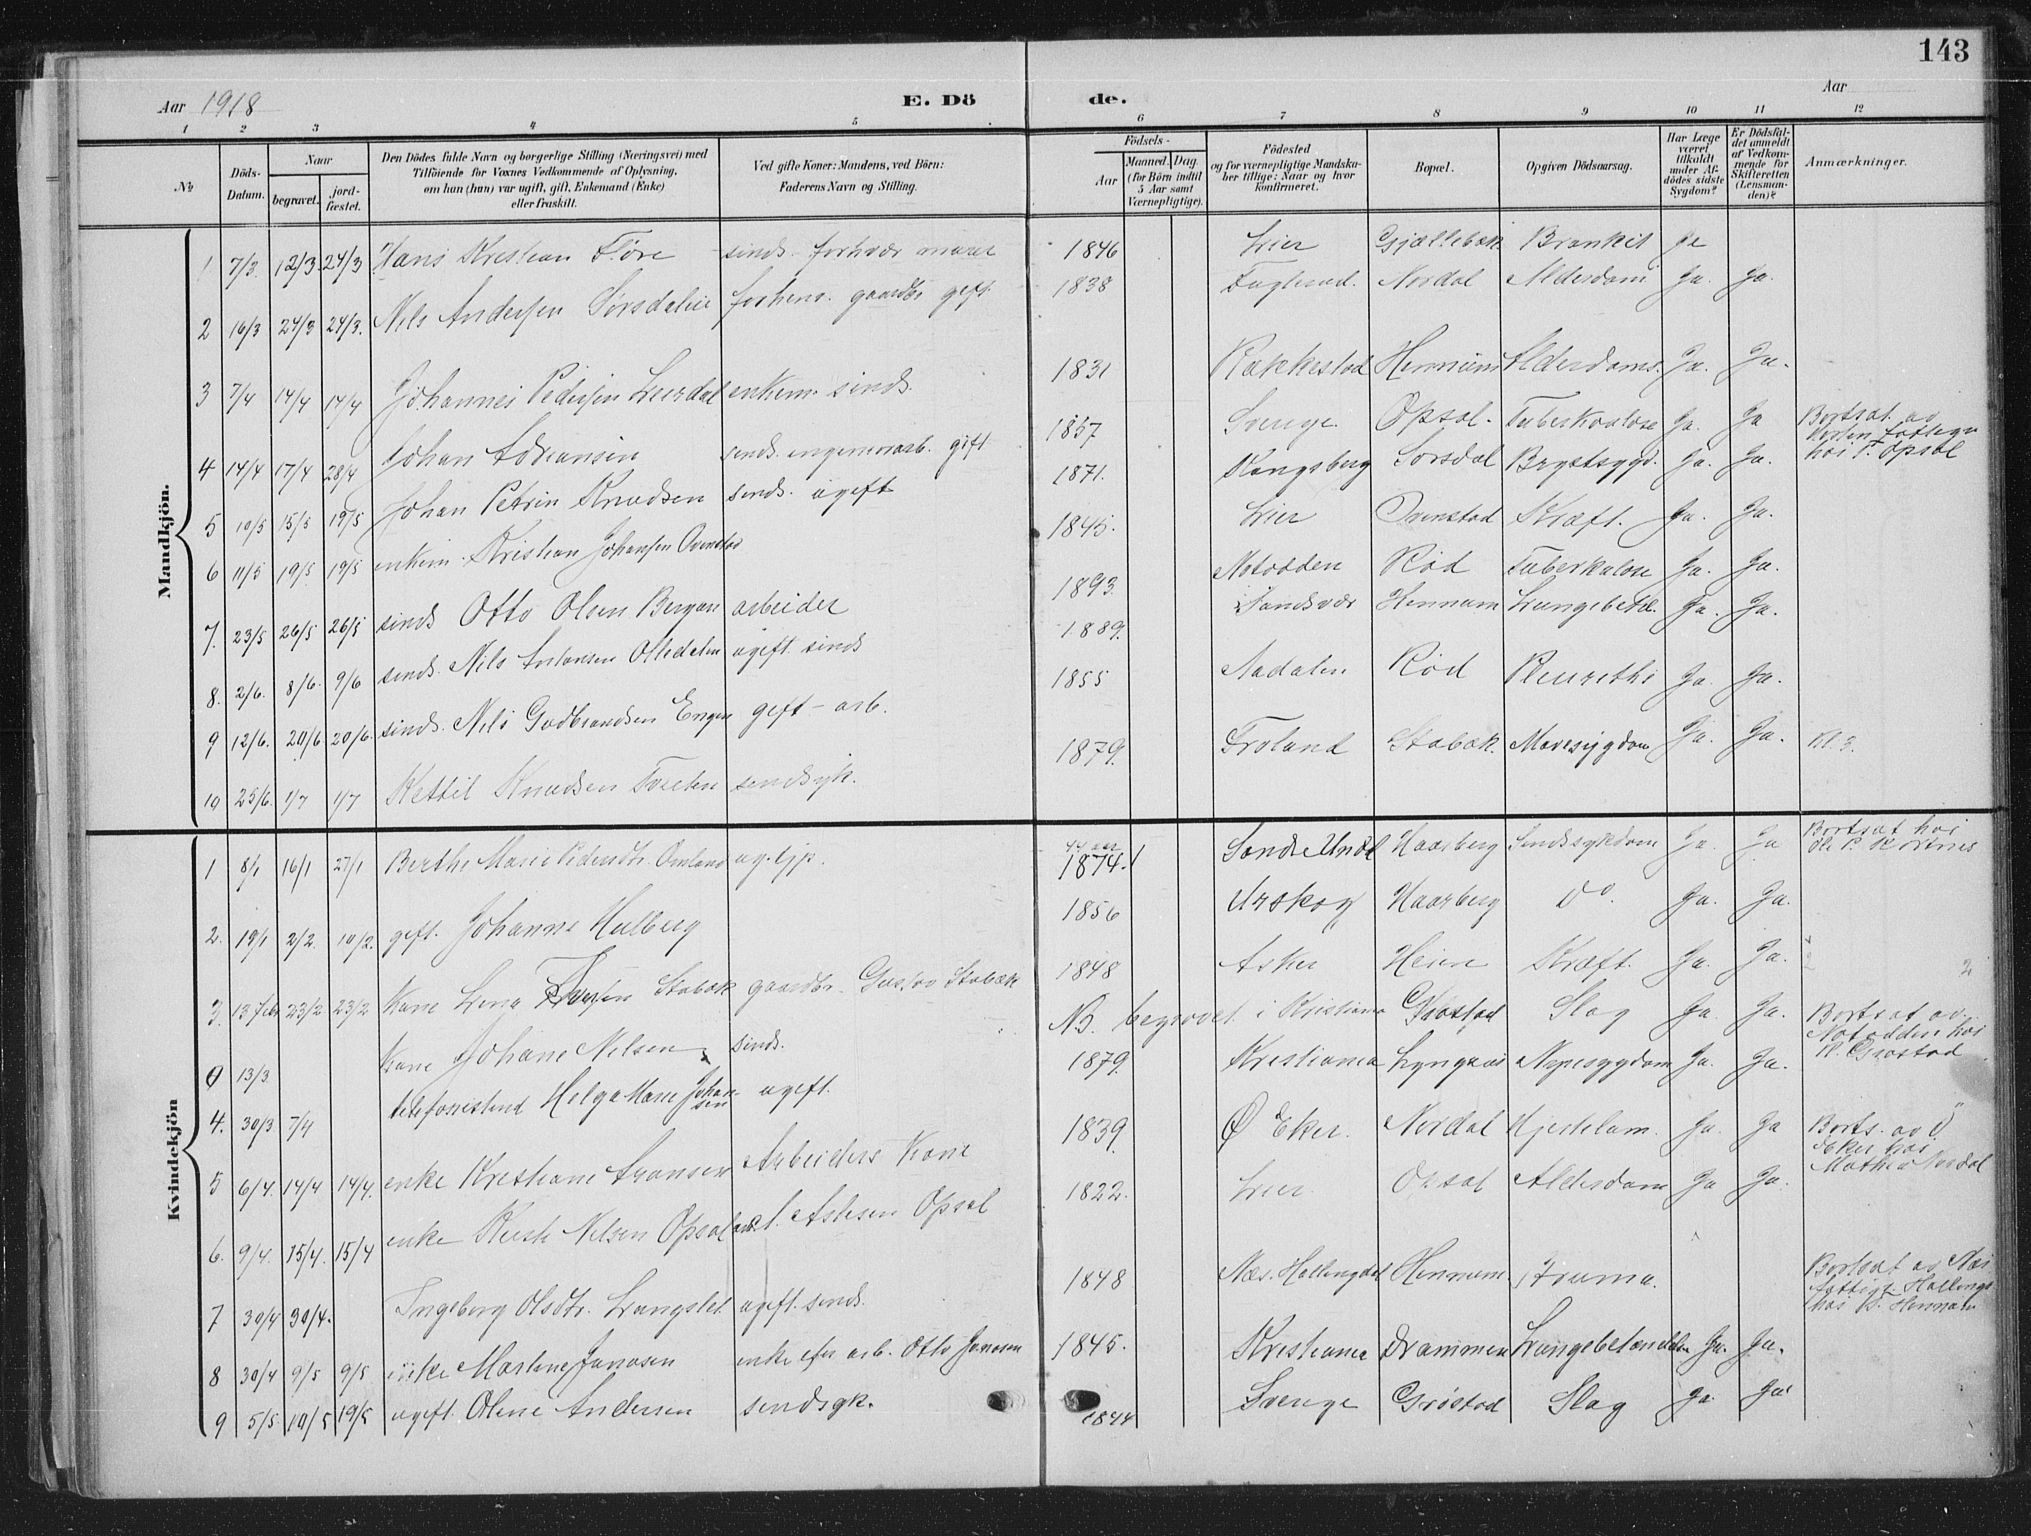 143
Aar 1918
E. Dö
de.
Aar
1 2 3 4 5 6 7 8 9 10 11 12
№
Döds-Datum.
Naar
begravet.
jordfæstet.
Den Dödes fulde Navn og borgerlige Stilling (Næringsvei) med
Tilföiende for Voxnes Vedkommende af Oplysning,
om han (hun) var ugift, gift, Enkemand (Enke)
eller fraskilt.
Ved gifte Koner: Mandens, ved Börn:
Faderens Navn og Stilling.
Födsels-
Aar
Maaned. Dag.
(for Börn indtil
5 Aar samt
Værnepligtige).
Födested
og for værnepligtige Mandskaber tillige: Naar og hvor
konfirmeret.
Bopæl.
Opgiven Dödsaarsag.
Har Læge været tilkaldt under Afdödes sidste Sygdom?
Er Dödsfaldet anmeldt af Vedkommende for Skifteretten (Lensmanden)?
Anmærkninger.
Mandkjön.
1 7/3 12/3 24/3 Hans Kristian Flöre sinds. 1846 Lier Gjellebæk Ja
2 16/3 24/3 24/3. Nils Andersen Sörsdalen forhenv. gaardbr gift 1838 Nordal Alderdom Ja. Ja.
3 7/4 14/4 14/4 Johannes Pedersen enkem. sinds. 1831 Rakkestad Hennum Alderdoms. Ja. Ja.
4 14/4 17/4 28/4 Johan Johansen sinds. gift 1857 Sverige. Opsal. Tuberkulose Ja. Ja Bortsat av
hos P. Opsal
5 10/5 15/5 19/5 Johan Petrin Knudsen sinds. ugift 1871. Kongsberg Sörsdal Brystsygd. Ja. Ja.
6 11/5 19/5 19/5 enkem. Kristian Johansen Ovenstad 1845. Lier Ovenstad Kræft. Ja. Ja.
7. 23/5 26/5 26/5 sinds Otto Olsen Bergan arbeider 1893. Notodden Röd Tuberkulose Ja. Ja.
8. 2/6. 8/6. 9/6 sinds. Nils Antonsen ugift sinds 1889. Sandsvær Hennum Lungebetæ. Ja. Ja.
9 12/6. 20/6 20/6. sinds. Nils Gudbrandsen Engen gift - arb. 1855 Aadalen Röd Ja. Ja.
10 25/6. 1/7 1/7 Kettil Knudsen Tveiten sindsyk. 1879. Froland Stabæk. Mavesygdom Ja. Ja. Kl. 3.
Kvindekjön
1 8/1 16/1 27/1 Berthe Marie Pedersdtr. Omland 44 aar 1874. Haarberg Sindssykdom Ja. Ja Bortsat hos
2. 19/1 2/2. 10/2. gift. Johanne Hulberg 1856 Urskog Haarberg Do. Ja. Ja.
3. 13 febr 23/2 23/2 Kone Lena Stabæk gaardbr. Gustav Stabæk 1848 Asker Heien Kræft. Ja. Ja.
0 13/3. Kone Johane Nilsen sinds. NB. begravet i Kristiania Gröstad Slag Ja. Ja. Bortsat av
Notodden hos
N. Gröstad
4. 30/3 7/4 telefonistind Helga Marie Johansen ugift. 1879. Kristiania Lyngaas Nyresygdom Ja. Ja.
5 6/4. 14/4 14/4. enke Kristiane Aronsen Arbeiders Kone 1839. Ø Eker. Nordal Hjertelam. Ja. Ja Borts. av Ö
Eker hos
Mathis Nordal
6. 9/4. 15/4. 15/4 enke Kirsti Nilsen Opsal Opsal 1822. Lier. Opsal Alderdom Ja Ja.
7 30/4 30/4. Ingeborg Olsdtr. Langslet ugift. sinds. 1848 Næs. Hallingdal Hennum. Struma. Bortsat av Næs
hos Hennum
8 30/4 9/5 9/5 enke Marline Jonasen enke efter arb. Otto Jonasen 1845. Kristiania Drammen Lungebetændelse Ja. Ja.
9 5/5. 10/5 19/5 ugift. Oline Andersen sindsyk. 1844 Sverige Gröstad Slag Ja. Ja.